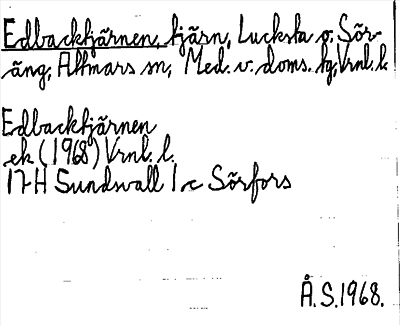 Edbacktjärnen, tjärn, Lucksta o. Sör-
äng, Attmars sn, Med. v. doms. tg, Vrnl. l.
Edbacktjärnen
ek (1968) Vrnl. l.
17H Sundsvall 1 c Sörfors
Å.S.1968.